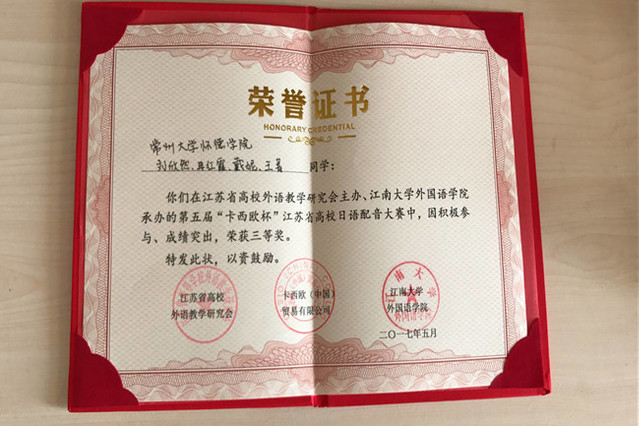 荣誉证书
HONORARY CREDENTIAL
常州大学怀德学院
刘欣然、冉红霞、戴妮、王著 同学：
你们在江苏省高校外语教学研究会主办、江南大学外国语学院
承办的第五届“卡西欧杯”江苏省高校日语配音大赛中，因积极参
与、成绩突出，荣获三等奖。
特发此状，以资鼓励。
江苏省高校 卡西欧（中国） 江南大学
外语教学研究会 贸易有限公司 外国语学院
二〇一七年五月